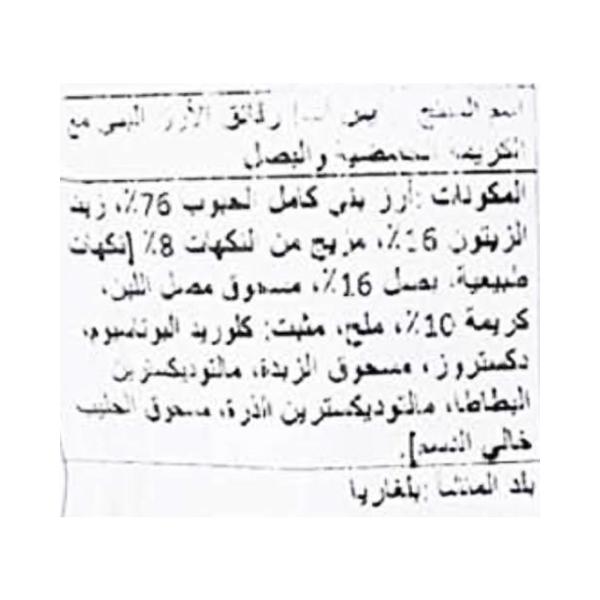 اسم المنتج : رقائق الأرز البني مع
الكريمة الحامضية والبصل
المكونات :أرز بني كامل الحبوب 76٪، زيت
الزيتون 16٪، مزيج من النكهات 8٪ [نكهات
طبيعية، بصل 16٪، مسحوق مصل اللبن،
كريمة 10٪، ملح، مثبت: كلوريد البوتاسيوم،
دكستروز، مسحوق الزبدة، مالتوديكسترين
البطاطا، مالتوديكسترين الذرة، مسحوق الحليب
خالي الدسم].
بلد المنشأ :بلغاريا